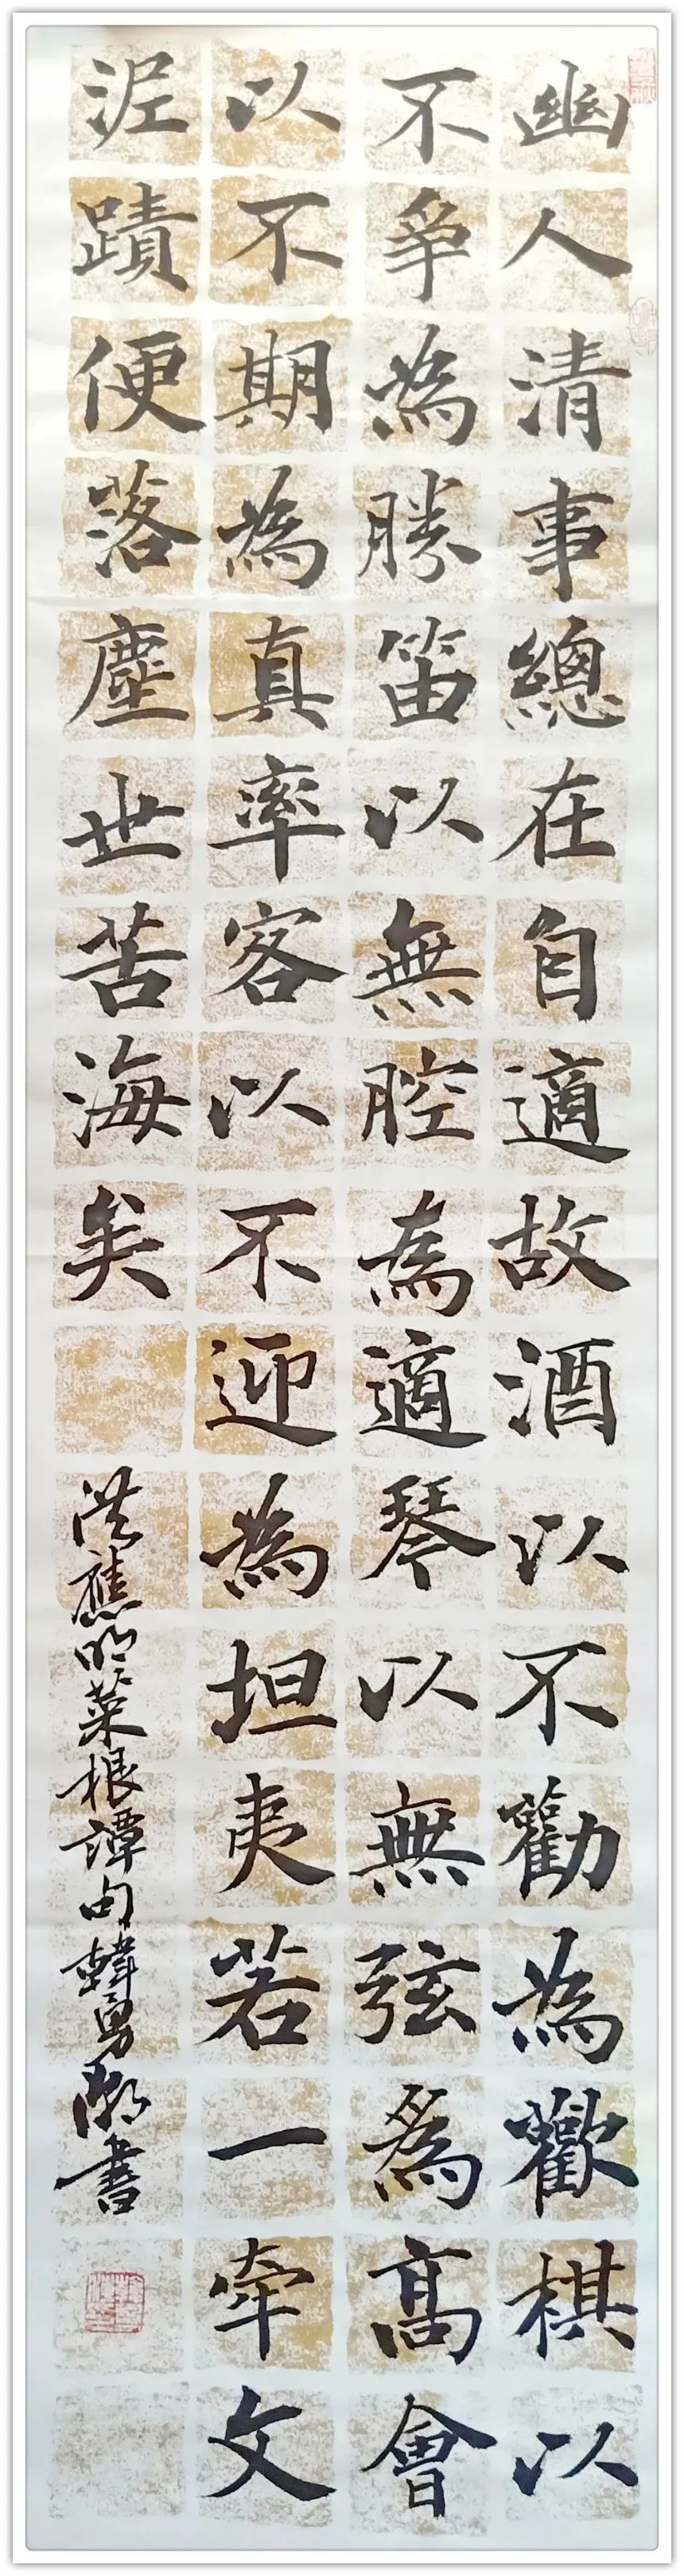 幽人清事總在自適故酒以不勸為歡棋以
不爭為勝笛以無腔為適琴以無弦為高會
以不期為真率客以不迎為坦夷若一牽文
泥蹟便落塵世苦海矣
洪應明菜根譚句韓勇敬書